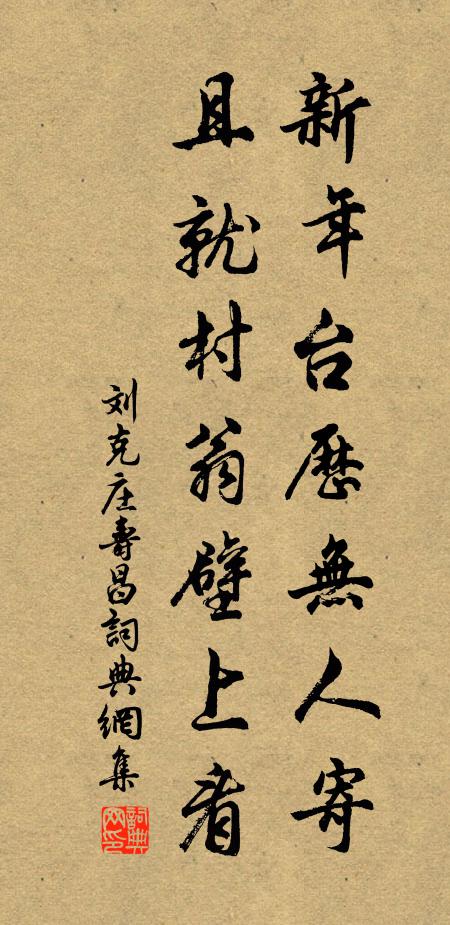 新年台歷無人寄
且就村翁壁上看
刘克庄壽昌詞典網集
詞典網印